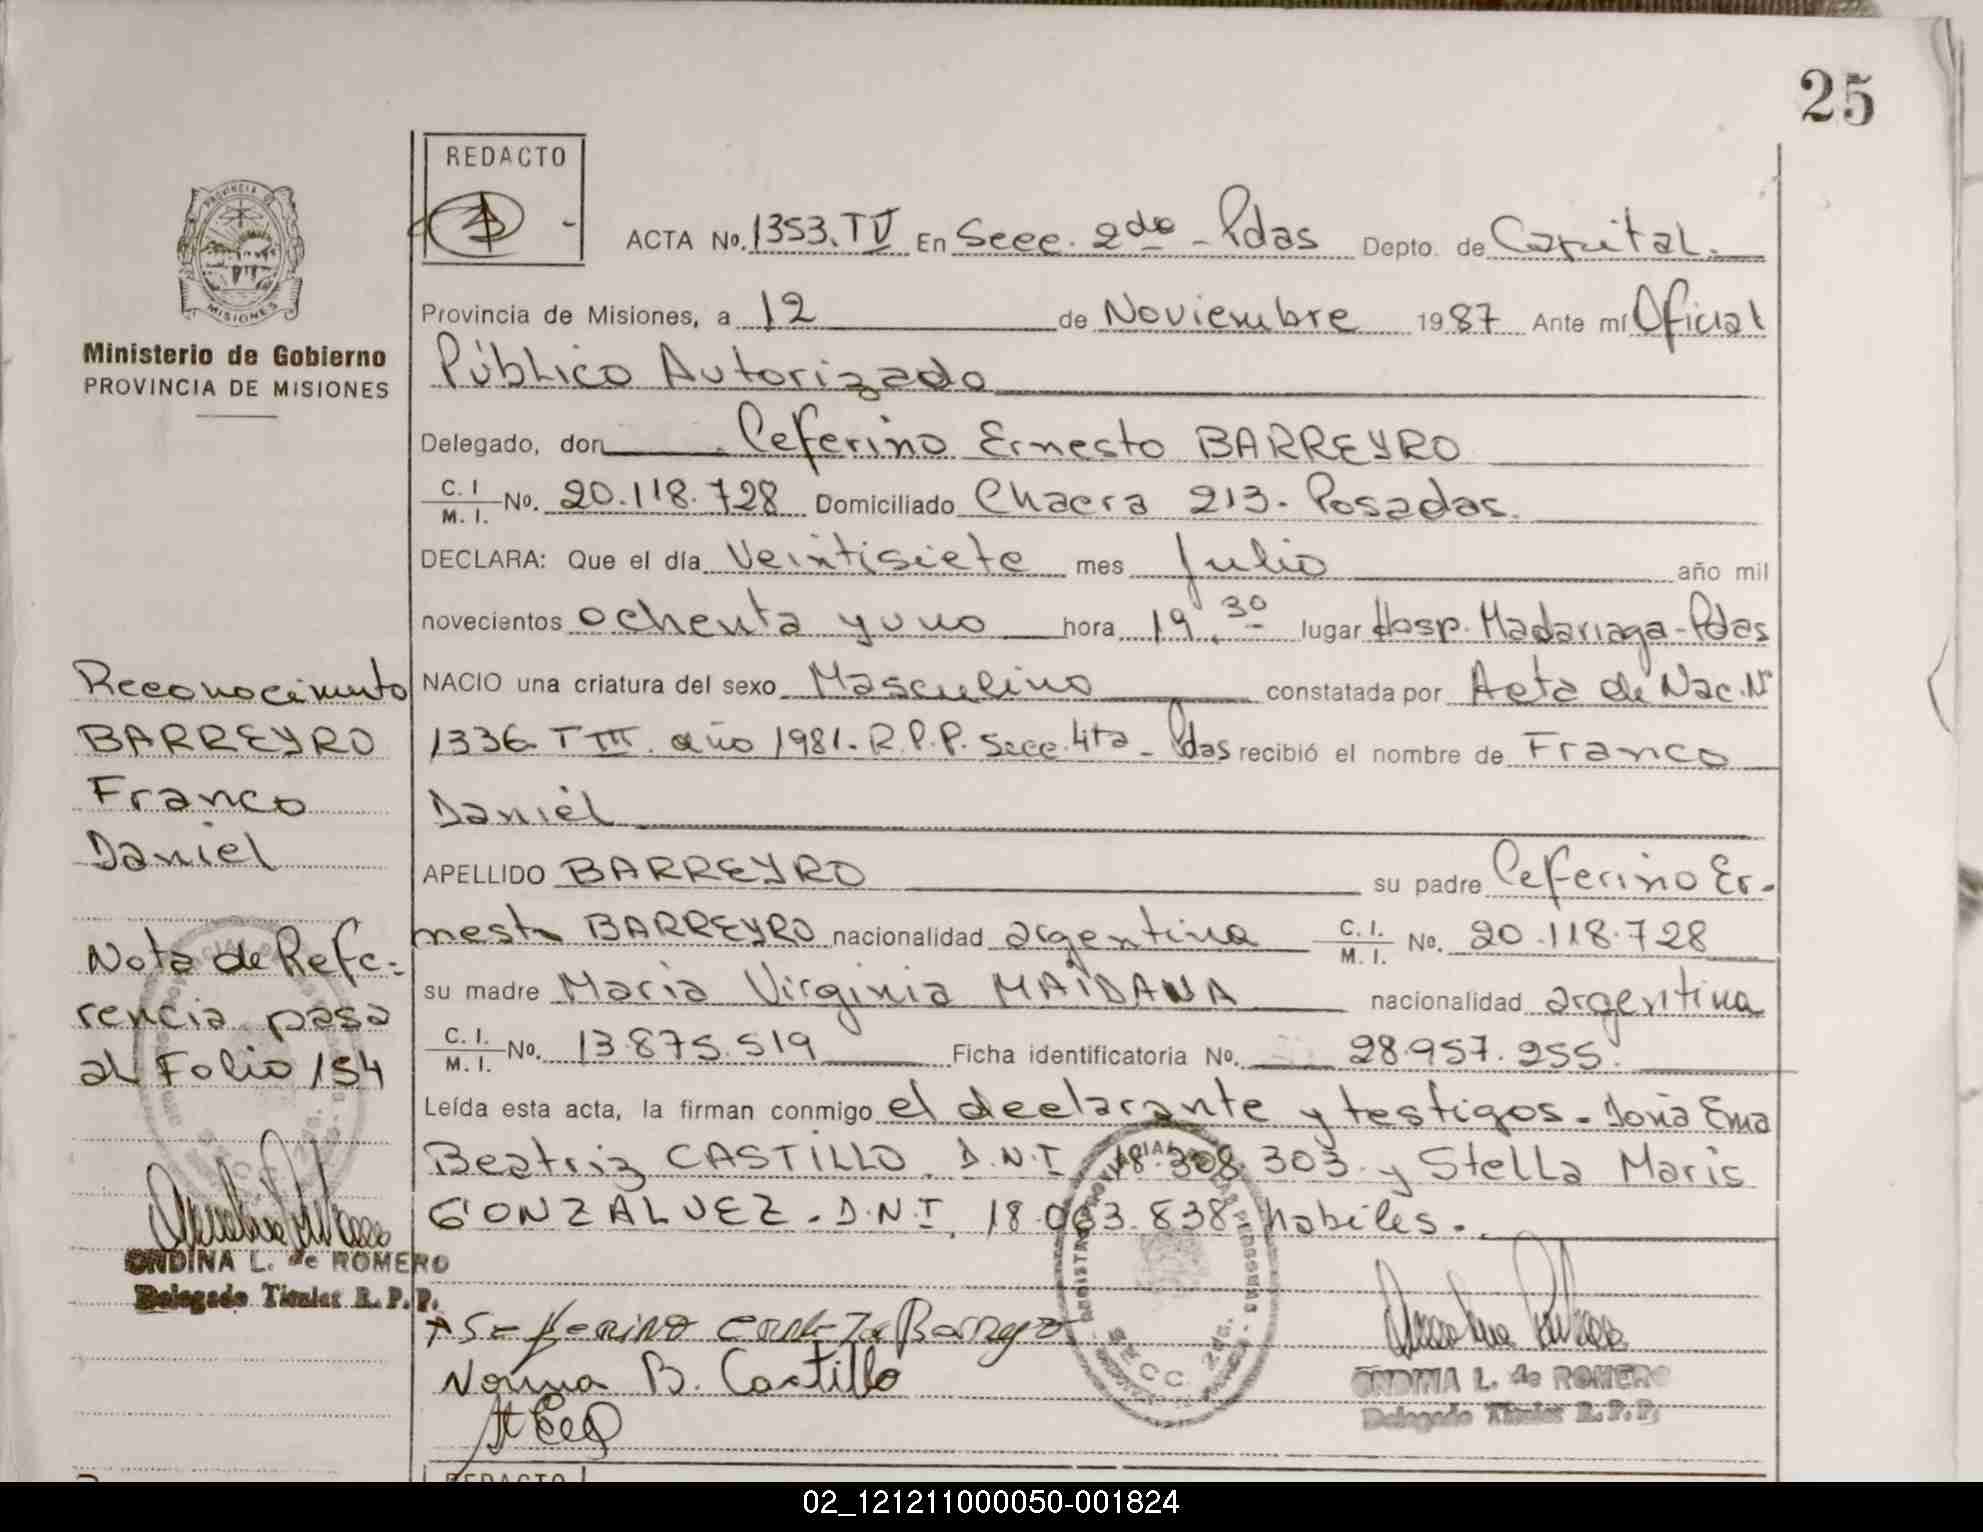 25
REDACTO
ACTA No. 1353. TV En Secc. 2da - Pdas Depto. de Capital.
PROVINCIA DE
MISIONES
Provincia de Misiones, a 12 de Noviembre 1987 Ante mí Oficial
Ministerio de Gobierno
PROVINCIA DE MISIONES
Público Autorizado
Delegado, don Ceferino Ernesto BARREYRO
C. I. M. I. No. 20.118.728 Domiciliado Chacra 213. Posadas.
DECLARA: Que el día Veintisiete mes Julio año mil
novecientos ochenta y uno hora 19.30 lugar Hosp. Madariaga - Pdas
NACIO una criatura del sexo Masculino constatada por Acta de Nac. Nº
1336 T III. año 1981. R.P.P. Secc. 4ta - Pdas recibió el nombre de Franco
Daniel
APELLIDO BARREYRO su padre Ceferino Er-
nesto BARREYRO nacionalidad argentina C. I. M. I. No. 20.118.728
su madre Maria Virginia MAIDANA nacionalidad argentina
C. I. M. I. No. 13.875.519 Ficha identificatoria No. 28.957.255.
Leída esta acta, la firman conmigo el declarante y testigos. Ema
Beatriz CASTILLO. D.N.I 18.308.303 y Stella Maris
GONZALVEZ. D.N.I. 18.063.838 habiles.
Reconocimiento
BARREYRO
Franco
Daniel
Nota de Refe-
rencia pasa
al Folio 154
ONDINA L. de ROMERO
Delegado Titular R. P. P.
Norma B. Castillo
SECC. 2da.
ONDINA L. de ROMERO
Delegado Titular R. P. P.
REDACTO
02_121211000050-001824